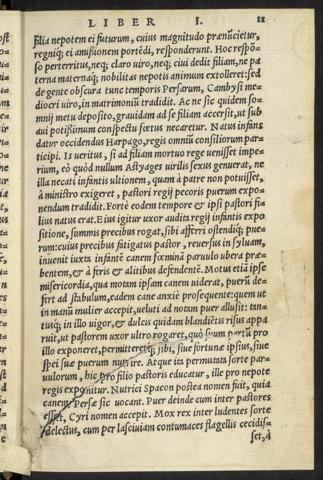 LIBER I. 18
filia nepotem ei futurum, cuius magnitudo prænũcietur,
regniq́; ei amißionem portẽdi, responderunt. Hoc respõ=
so perterritus, neq; claro uiro, neq; ciui dedit filiam, ne pa
terna maternaq́; nobilitas nepotis animum extolleret: sed
de gente obscura tunc temporis Persarum, Cambysi me=
diocri uiro, in matrimoniũ tradidit. Ac ne sic quidem so=
mnij metu deposito, grauidam ad se filiam accersit, ut sub
aui potißimum conspectu fœtus necaretur. Natus infans
datur occidendus Harpago, regis omniũ consiliorum par=
ticipi. Is ueritus, si ad filiam mortuo rege uenisset impe=
rium, eò quòd nullum Astyages uirilis sexus genuerat, ne
illa necati infantis ultionem, quam à patre non potuisset,
à ministro exigeret, pastori regij pecoris puerum expo=
nendum tradidit. Fortè eodem tempore & ipsi pastori fi=
lius natus erat. Eius igitur uxor audita regij infantis expo
sitione, summis precibus rogat, sibi afferri ostendiq́; pue=
rum: cuius precibus fatigatus pastor, reuersus in syluam,
inuenit iuxta infantẽ canem fœminã paruulo ubera præ=
bentem, & à feris & alitibus defendentẽ. Motus etiã ipse
misericordia, qua motam ipsam canem uiderat, puerũ de=
fert ad stabulum, eadem cane anxiè prosequente: quem ut
in manũ mulier accepit, ueluti ad notam puer allusit: tan=
tusq́; in illo uigor, & dulcis quidam blandiẽtis risus appa
ruit, ut pastorem uxor ultro rogaret, quò suum partũ pro
illo exponeret, permitteretq́; sibi, siue fortunæ ipsius, siue
spei suæ puerum nutrire. Atque ita permutata sorte par=
uulorum, hic pro filio pastoris educatur, ille pro nepote
regis exponitur. Nutrici Spacon postea nomen fuit, quia
canem Persæ sic uocant. Puer deinde cum inter pastores
esset, Cyri nomen accepit. Mox rex inter ludentes sorte
delectus, cum per lasciuiam contumaces flagellis cecidis=
set, à